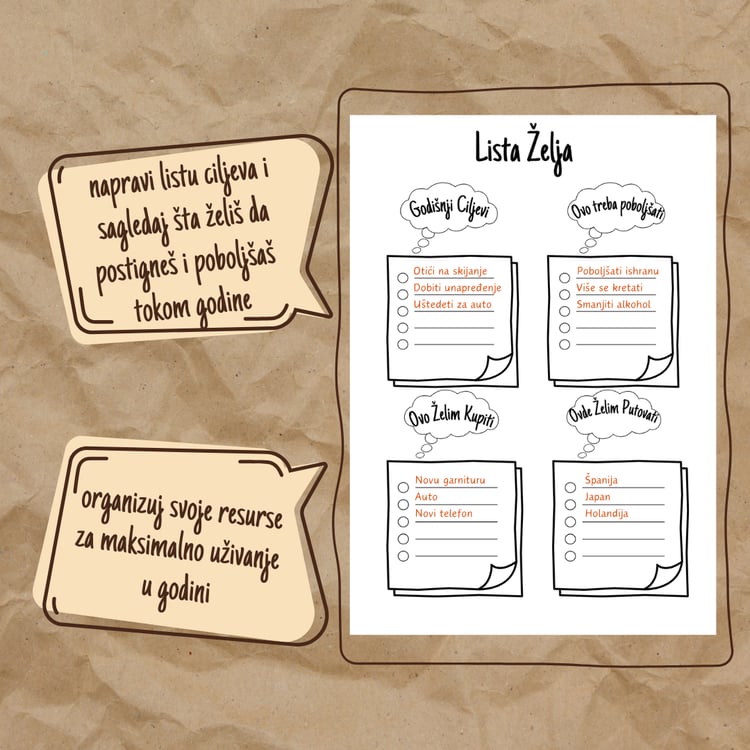 napravi listu ciljeva i
sagledaj šta želiš da
postigneš i poboljšaš
tokom godine
organizuj svoje resurse
za maksimalno uživanje
u godini
Lista Želja
Godišnji Ciljevi
Otići na skijanje
Dobiti unapređenje
Uštedeti za auto
Ovo treba poboljšati
Poboljšati ishranu
Više se kretati
Smanjiti alkohol
Ovo Želim Kupiti
Novu garnituru
Auto
Novi telefon
Ovde Želim Putovati
Španija
Japan
Holandija